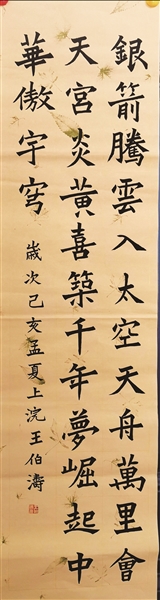 銀箭騰雲入太空天舟萬里會
天宮炎黃喜築千年夢崛起中
華傲宇穹
歲次己亥孟夏上浣王伯濤